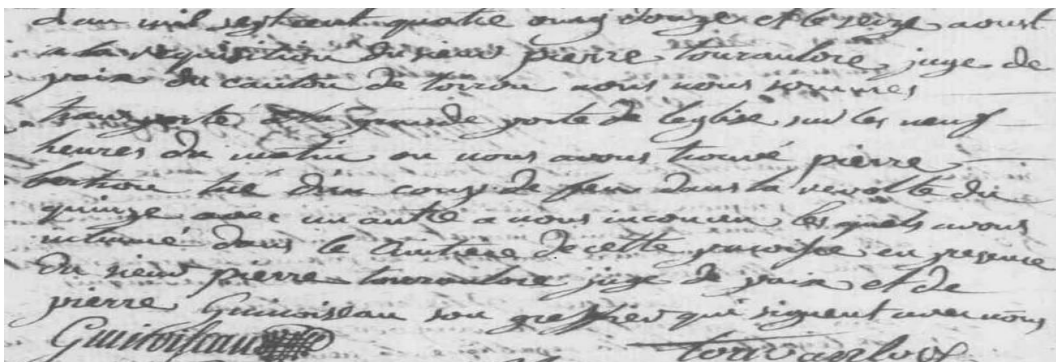 L'an mil sept cent quatre vingt douze et le seize aoust
a la requisition du sieur pierre touraulore juge de
paix du canton de torrou nous nous sommes
transporté a la grande porte de leglise sur les neuf
heures du matin ou nous avons trouvé pierre
tué d'un coup de feu dans la revolte du
quinze avec un autre a nous inconeu les quels avons
inhumé dans le Cimtiere de cette paroisse en presence
du sieur pierre touraulore juge de paix et de
pierre Guinoiseau son greffier qui signent avec nous
Guinoiseau